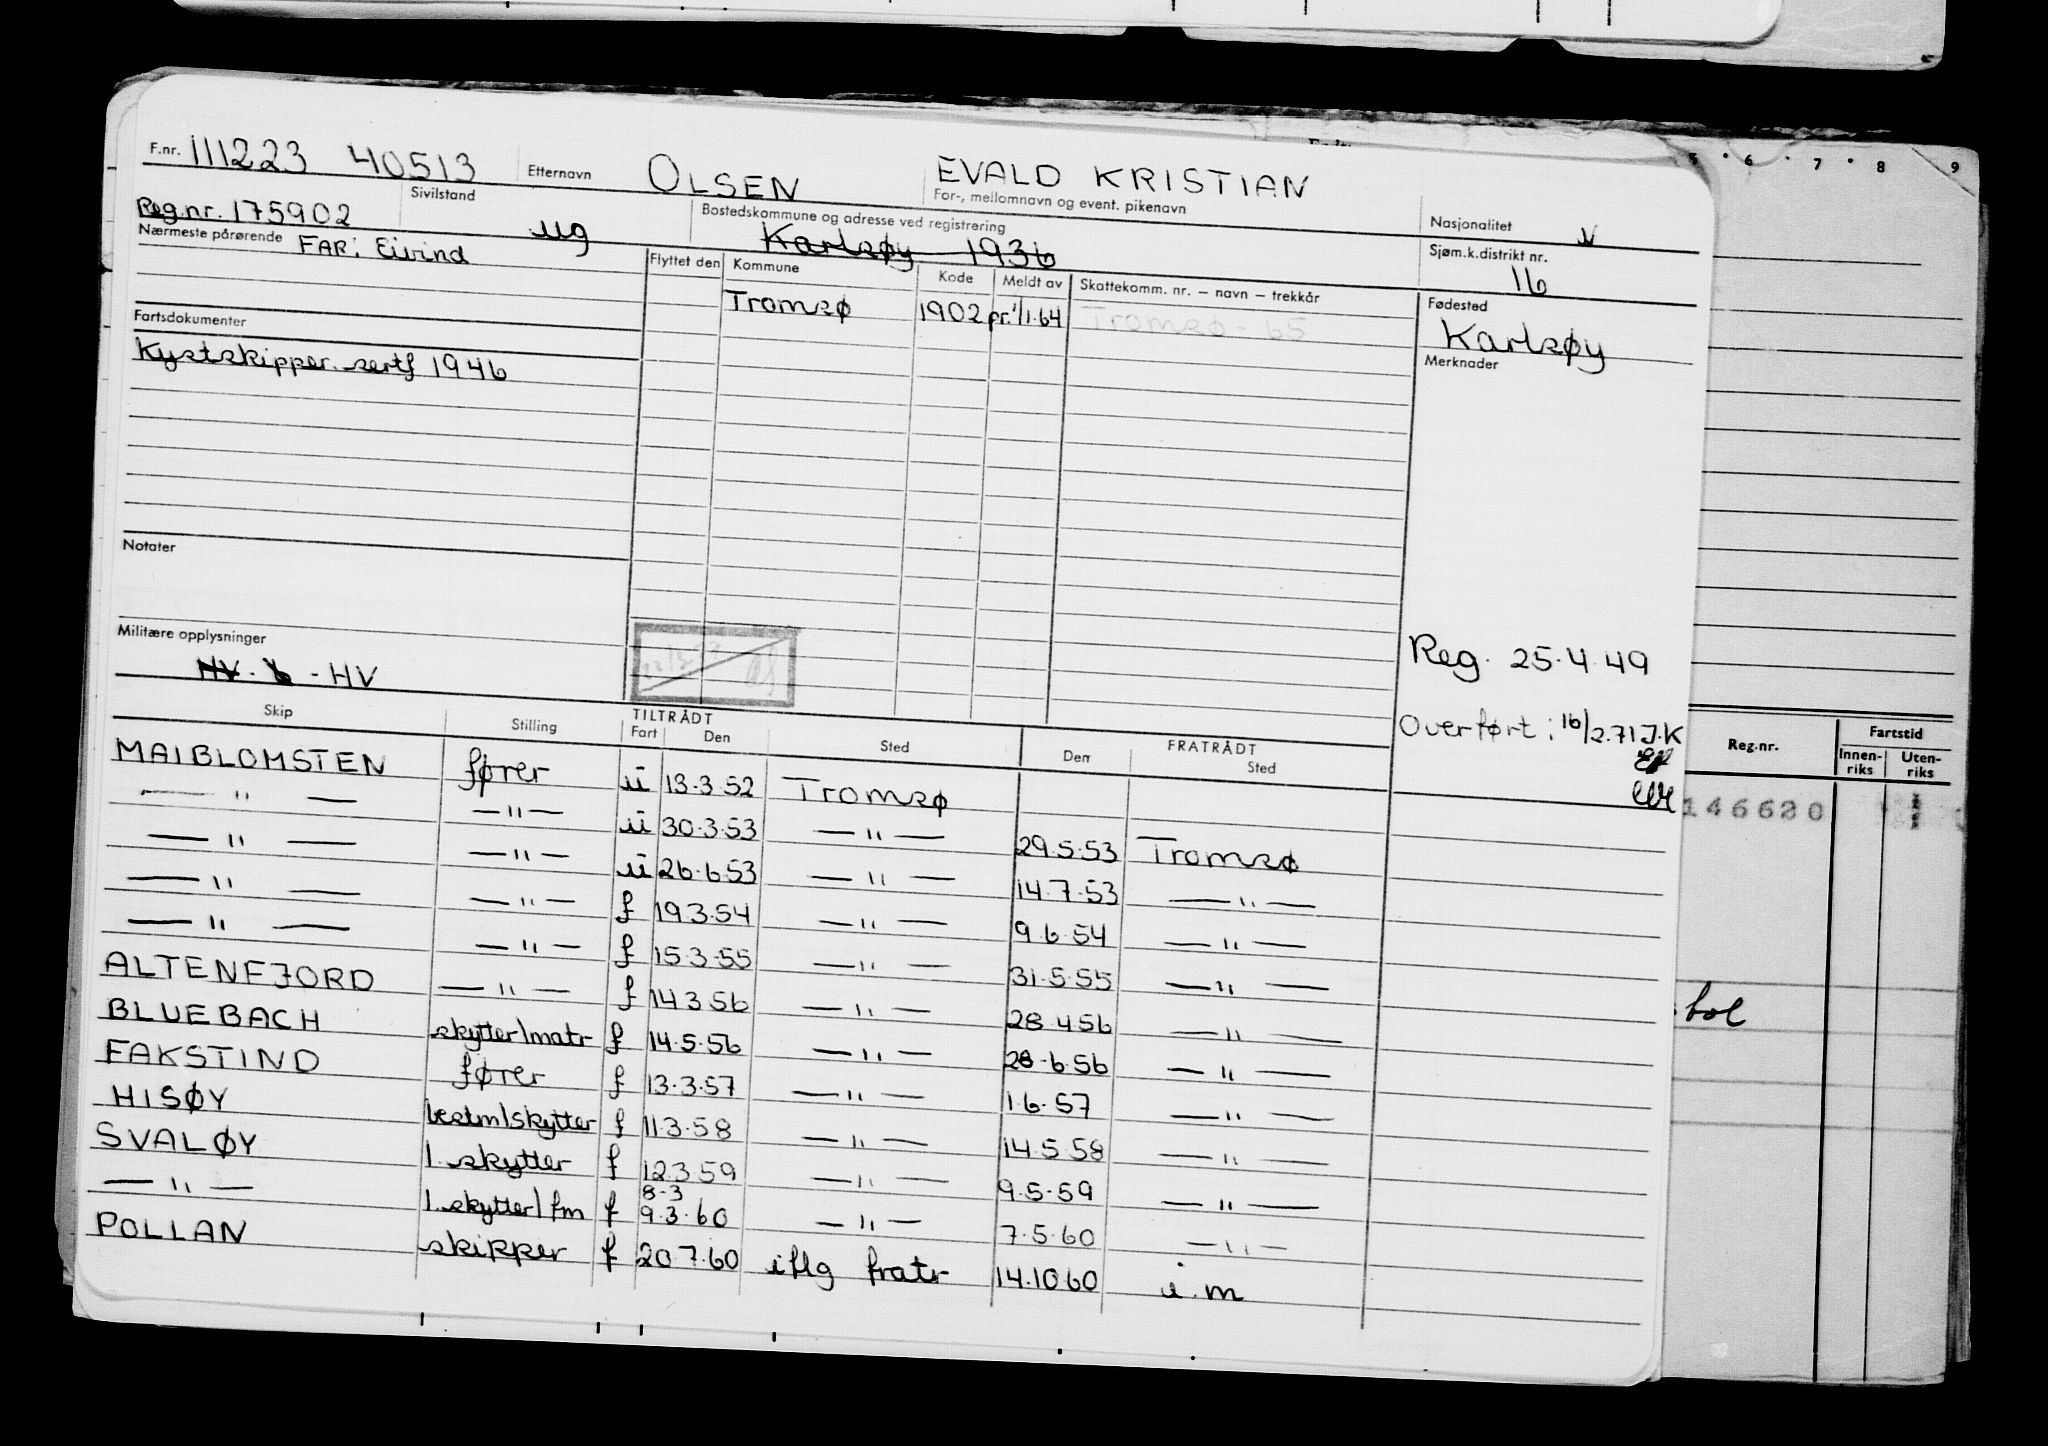 F.nr. 111223 40513 Etternavn OLSEN EVALD KRISTIAN
For-, mellomnavn og event. pikenavn
Reg.nr. 175902 Sivilstand ug Bostedskommune og adresse ved registrering Nasjonalitet N
Karlsøy 1936
Nærmeste pårørende FAR: Eivind Sjøm.k.distrikt nr. 16
Flyttet den Kommune Kode Meldt av Skattekomm. nr. — navn — trekkår Fødested
Tromsø 1902 pr.1/1.64 Tromsø - 65 Karlsøy
Fartsdokumenter Merknader
Kystskipper.sertf 1946
Notater
Militære opplysninger Reg. 25.4.49
HV. - HV
Overført: 16/2.71 J.K
Skip Stilling TILTRÅDT FRATRÅDT
Fart Den Sted Den Sted
MAIBLOMSTEN fører u 13.3.52 Tromsø
— " — — " — u 30.3.53 — " — 29.5.53 Tromsø
— " — — " — u 26.6.53 — " — 14.7.53 — " —
— " — — " — f 19.3.54 — " — 9.6.54 — " —
— " — — " — f 15.3.55 — " — 31.5.55 — " —
ALTENFJORD — " — f 14.3.56 — " — 28.4.56 — " —
BLUEBACH skytter/matr f 14.5.56 — " — 28.6.56 — " —
FAKSTIND fører f 13.3.57 — " — 1.6.57 — " —
HISØY bestm/skytter f 11.3.58 — " — 14.5.58 — " —
SVALØY 1. skytter f 12.3.59 — " — 9.5.59 — " —
8-3
— " — 1. skytter/fm f 9.3.60 — " — 7.5.60 — " —
POLLAN skipper f 20.7.60 iflg fratr 14.10.60 u.m
5 6 7 8 9
Reg.nr. Fartstid
Innen-riks Uten-riks
146620